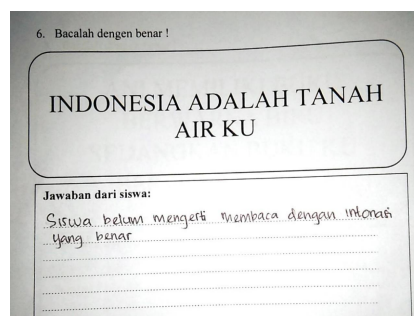 6. Bacalah dengen benar !
INDONESIA ADALAH TANAH
AIR KU
Jawaban dari siswa:
Siswa belum mengerti membaca dengan intonasi
yang benar